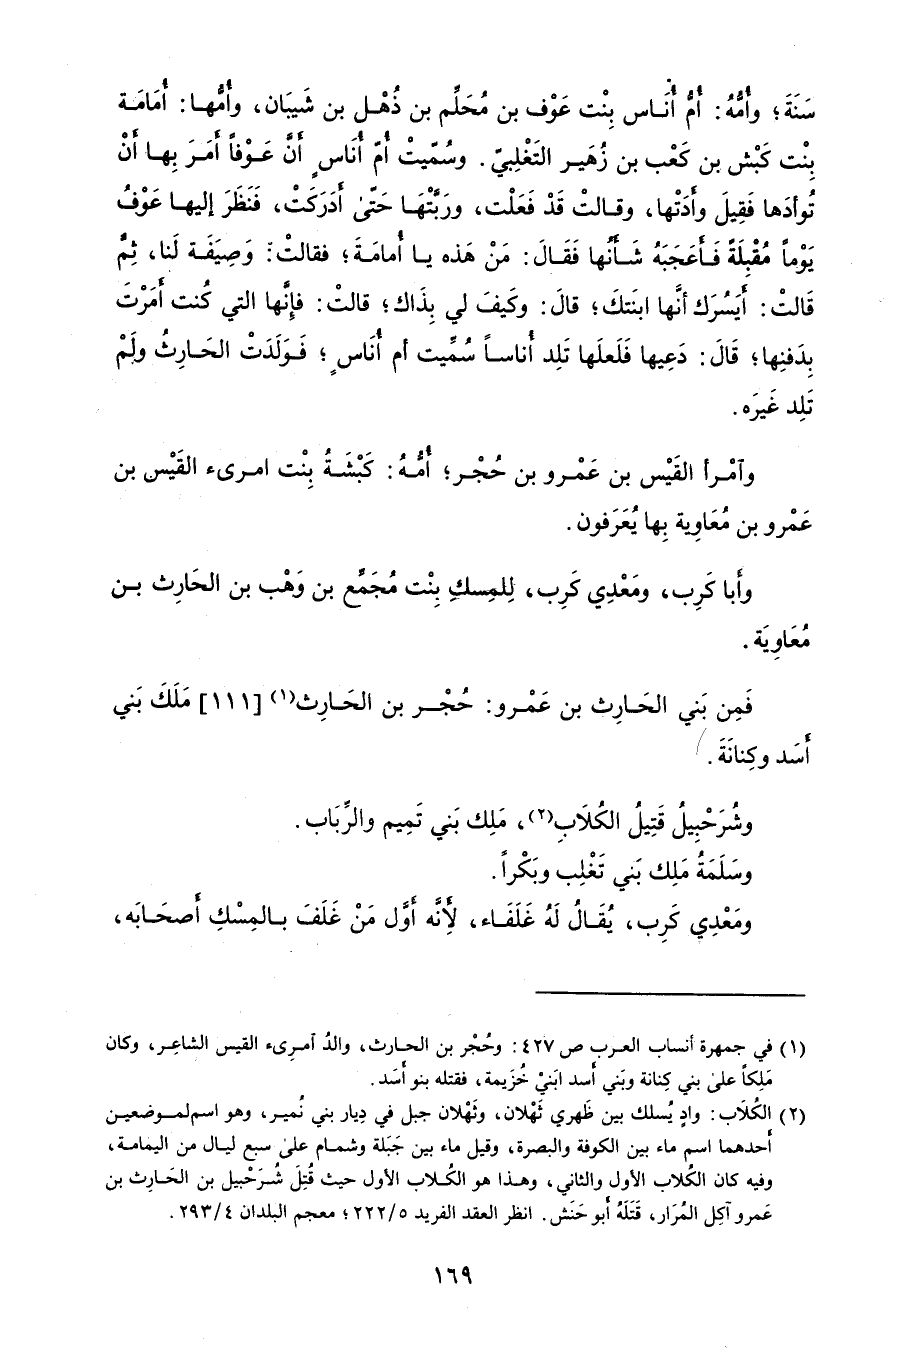 سَنَةَ؛ وأُمُّهُ: أُمُّ أُنَـاس بِنْت عَوْف بن مُحَلِّم بن ذُهْـل بن شَيبَان، وأمُّهـا: أُمَامَـة
بِنْت كَبْش بن كَعْب بن زُهَيـر التَغْلِبيّ. وسُمِّيتْ أُمّ أُنَاسٍ أَنَّ عَـوْفاً أَمَـرَ بِهـا أَنْ
تُوأَدَها فَقِيلَ وأَدَتْها، وقـالتْ قَدْ فَعَلَت، وربَّتْهَـا حَتّىٰ أَدَركَتْ، فَنَظَرَ إليهـا عَوْفُ
يَوْماً مُقْبِلَةً فـأَعَجَبَهُ شَـأنُها فَقَـالَ: مَنْ هَذه يـا أُمامَـةَ؛ فقالتْ: وَصِيفَـة لَنا، ثمّ
قَالتْ: أيَسُرَك أنَّها ابنَتكَ؛ قالَ: وكَيفَ لي بِذَاك؛ قالتْ: فإنَّها التي كُنت أمَرْتَ
بِدَفنِها؛ قَالَ: دَعِيها فَلَعلَها تَلِد أُناسـاً سُمِّيت أم أُنَاسٍ؛ فَـوَلَدَتْ الحَـارِثُ ولَمْ
تَلِد غَيرَه.
وآمْـرأ القَيْس بن عَمْـرو بن حُجْـر؛ أُمُّـهُ: كَبْشَـةُ بِنْت امـرىء القَيْس بن
عَمْرو بن مُعَاوِية بِها يُعَرَفون.
وأَبا كَرِب، ومَعْدِي كَرِب، لِلمِسكِ بِنْت مُجَمَّع بن وَهْب بن الحَارِث بـن
مُعَاوِيَة.
فَمِن بَني الحَـارِث بن عَمْـرو: حُجْـر بن الحَـارِث(١) [١١١] مَلَكَ بَني
أَسَد وكِنانَةَ.
وشُرَحْبِيلُ قَتِيلُ الكُلَابِ(٢)، مَلِك بَني تَمِيم والرِّبَاب.
وسَلَمَةُ مَلِك بَني تَغْلِب وبَكْراً.
ومَعْدِي كَرِب، يُقَـالُ لَهُ غَلَفَـاء، لأِنَّه أَوَّل مَنْ غَلَفَ بـالمِسْكِ أَصحَابَه،
(١) في جمهرة أنساب العرب ص ٤٢٧: وحُجْر بن الحـارث، والدُ آمـرِىء القيس الشاعِـر، وكان
مَلِكاً علىٰ بني كِنانة وبَني أسد ابَنيْ خُزَيمة، فقتله بنو أسَد.
(٢) الكُلَاب: وادٍ يُسلك بين ظَهري ثَهْلان، وثَهْلان جبل في دِيار بني نُميـر، وهو اسم لمـوضعيـن
أحدهما اسم ماء بين الكوفة والبصرة، وقيل ماء بين جَبَلة وشمـام علىٰ سبع ليـال من اليمامـة،
وفيه كان الكُلاب الأول والثاني، وهـذا هو الكُـلاب الأول حيث قُتِلَ شُـرَحْبيل بن الحَـارِث بن
عَمرو آكِل المُرَار، قَتَلَهُ أبو حَنَش. انظر العقد الفريد ٢٢٢/٥؛ معجم البلدان ٢٩٣/٤.
١٦٩